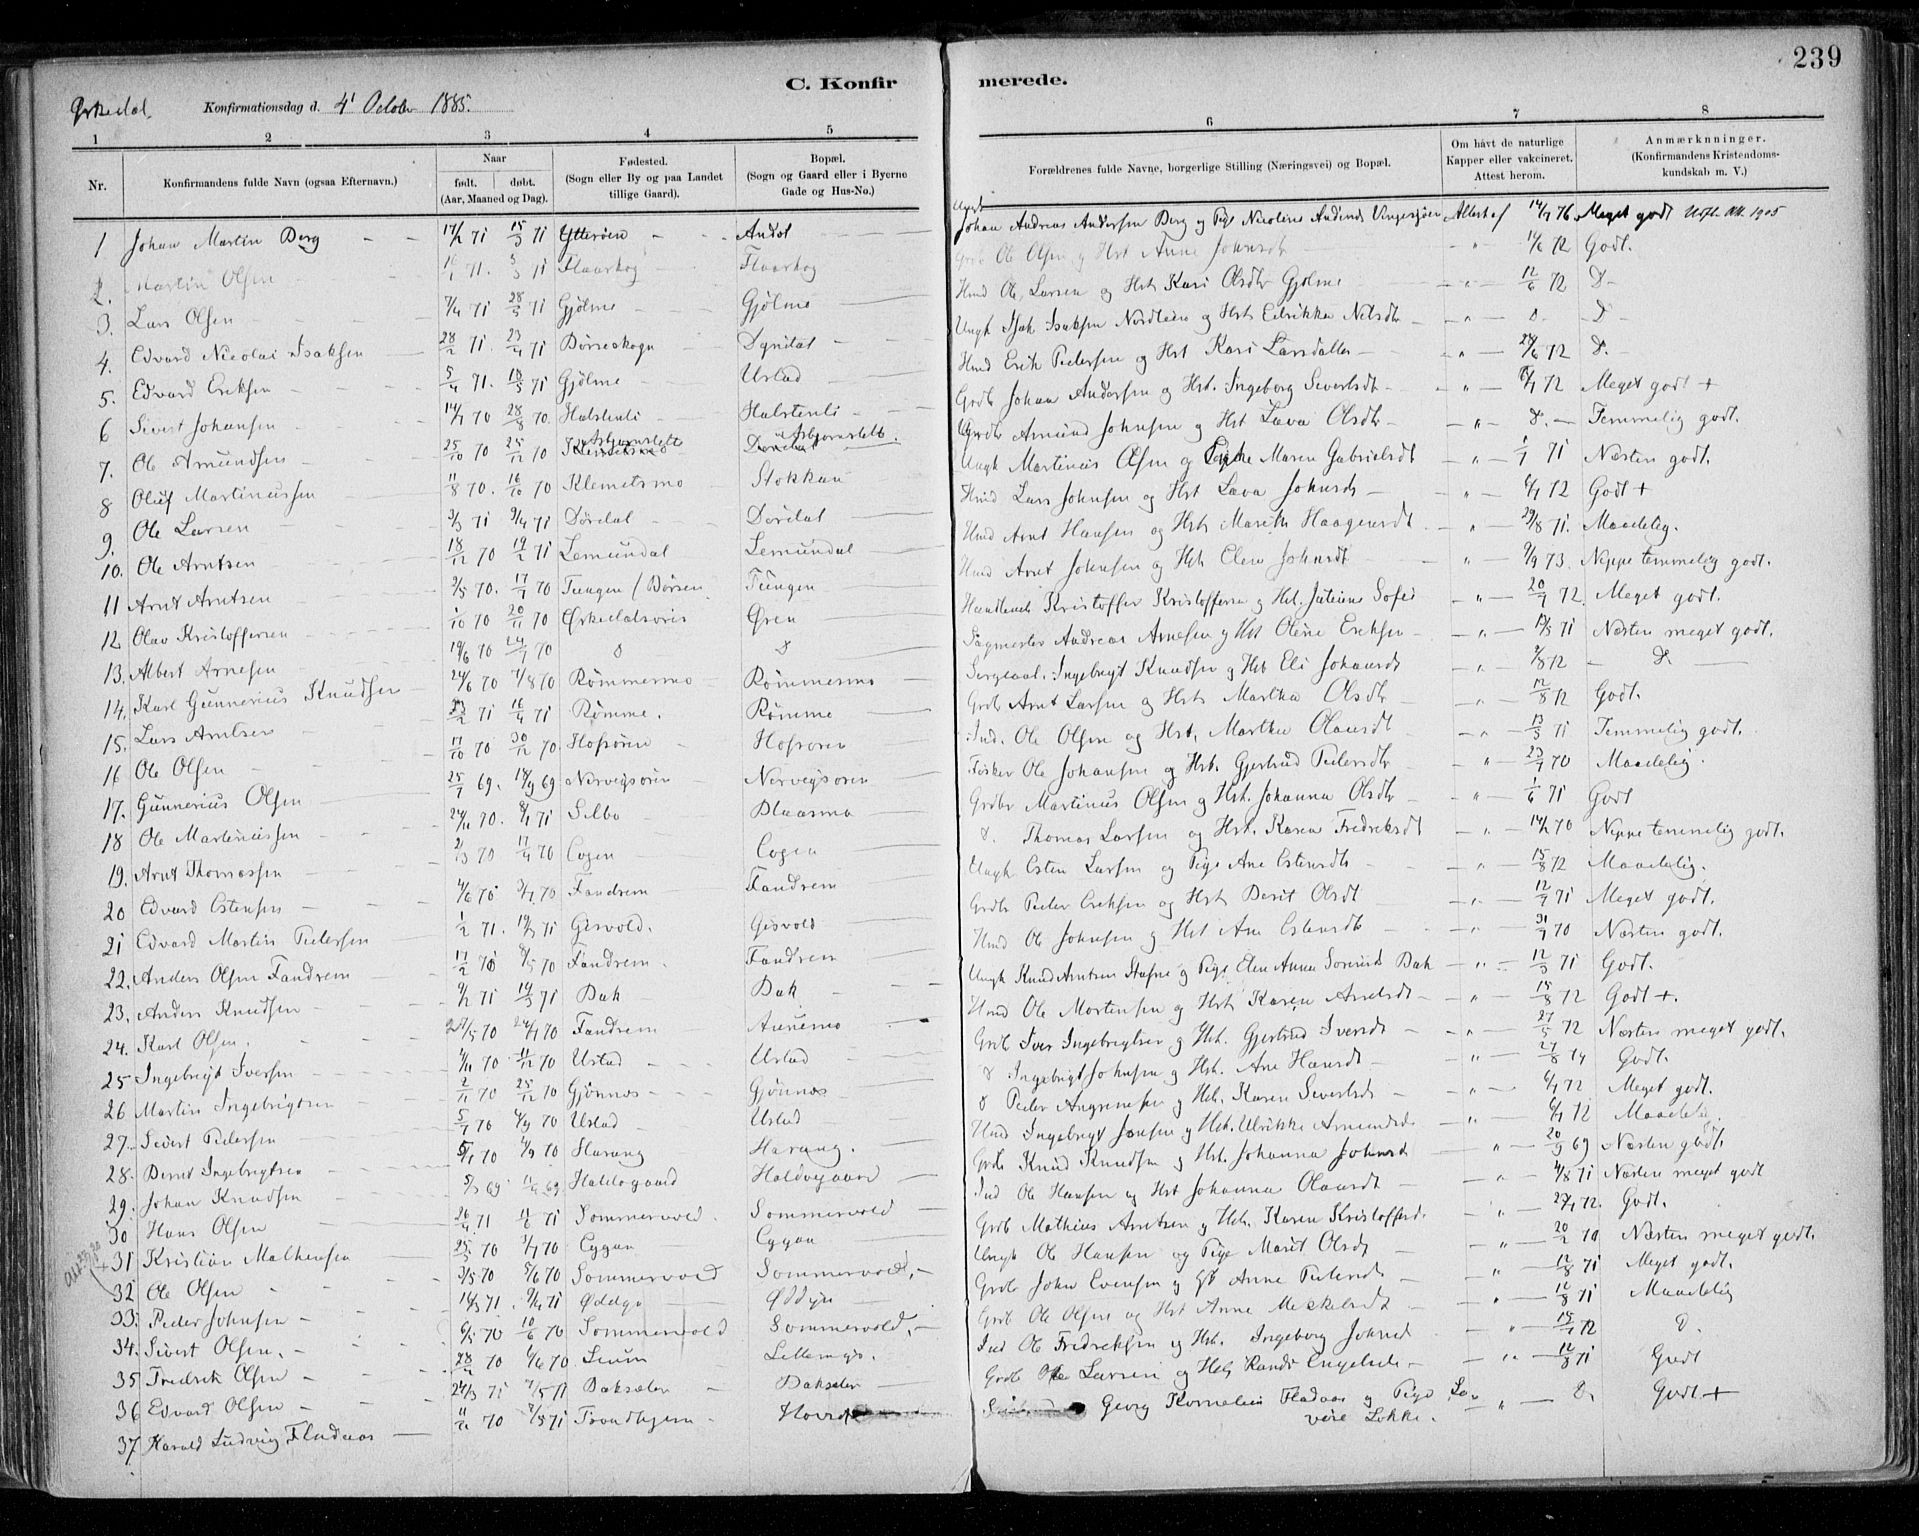 239
C. Konfirmerede.
Ørkedal. Konfirmationsdag d. 4' October 1885.
1 2 3 4 5 6 7 8
Nr. Konfirmandens fulde Navn (ogsaa Efternavn.) Naar født. døbt. (Aar, Maaned og Dag). Fødested. (Sogn eller By og paa Landet tillige Gaard). Bopæl. (Sogn og Gaard eller i Byerne Gade og Hus-No.) Forældrenes fulde Navne, borgerlige Stilling (Næringsvei) og Bopæl. Om havt de naturlige Kapper eller vakcineret. Attest herom. Anmærkninger. (Konfirmandens Kristendomskundskab m. V.)
1 Johan Martin Berg 17/2 71 15/3 71 Ytterøen Andal Ungk Johan Andreas Andersen Berg og Pige Nicoline Attest af 14/7 76 Meget godt 1905
2. Martin Olsen 71. 71 Flaaskog Flaaskog Grdb Ole Olsen og Hst Anne Johnsdtr 72 Godt.
3. Lars Olsen 7/4 71 28/5 71 Gjølme Gjølme Hmd Ole Larsen og Hst Kari Olsdtr Gjølme 12/6 72 D-
4. Edvard Nicolai Isaksen 28/2 71. 23/4 71 Børseskogn Dyrdal Ungk Isak Isaksen og Hst Nilsdtr D-
5. Edvard Eriksen 5/4 71. 18/5 71 Gjølme Ustad Hmd Erik Pedersen og Hst Kari Larsdatter 72 D.-
6 Sivert Johansen 14/7 70 28/8 70. Halstenli Halstenli Grdb Johan Andersen og Hst. Ingeborg Sivertsdt 72 Meget godt +
7. Ole Amundsen 25/10 70 25/12 70 Asbjørnslett Asbjørnslett. Grdbr Amund Johnsen og Hst Lava Olsdtr d. Temmelig godt.
8 Oluf Martinussen 11/8 70. 16/10 70 Klemetsmo Stokkan Ungk Martinus Olsen og Maren Gabrielsdt 1/7 71 Næsten godt.
9. Ole Larsen 3/3 71 9/4 71 Dørdal Dørdal Hmd Lars Johnsen og Hst Lava Johnsdt 72 Godt +
10. Ole Arntsen 18/12 70 19/2 71 Lemundal Lemundal Hmd Arnt Hansen og Hst Marith Haagensdt 29/8 71. Maadelig.
11 Arnt Arntsen 3/5 70. 17/7 70 Tungen (Børsen Tungen Hmd Arnt Johnsen og Hst Elen Johnsdt 9/9 73. Neppe temmelig godt.
12 Olav Kristoffersen 1/10 70 20/11 70 Ørkedalsøren Øren Kristoffer Kristoffersen og Hst. 20/7 72. Meget godt.
13. Albert Arnesen 19/6 70 24/7 70 d d Sagmester Andreas Arnesen og Hst Oline Eriksen 71 Næsten meget godt.
14. Karl Gunnerius Knudsen 24/6 70 7/8 70 Rømmesmo Rømmesmo Ingebrigt Knudsen og Hst Eli Johansdt 72 D.
15. Lars Arntsen 71 16/4 71 Rømme. Rømme Grdb Arnt Larsen og Hst Martha Olsdtr 12/8 72 Godt.
16 Ole Olsen 17/10 70 30/12 70 Hofsøren Hofsøren Ind. Ole Olsen og Hst. Martha Olausdt 13/3 71 Temmelig godt.
17. Gunnerius Olsen 25/7 69. 69 Nerveysøren Nerveysøren Fisker Ole Johansen og Hst. Gjertrud Pedersdtr 23/7 70 Maadelig.
18 Ole Martinussen 24/11 70. 8/1 71 Selbo Blaasmo Grdbr Martinus Olsen og Hst. Johanna Olsdtr 1/6 71 Godt
19. Arnt Thomassen 70 17/4 70 Evjen Evjen d. Thomas Larsen og Hst. Karen Fredriksdt 70 Neppe temmelig godt.
20 Edvard Estensen 4/6 70 3/7 70 Fandrem Fandrem Ungk Esten Larsen og Pige Ane Estensdtr 15/8 72 Maadelig.
21 Edvard Martin Pedersen 1/2 71. 71 Gisvold. Gisvold Grdbr Peder Eriksen og Hst Berit Olsdt 12/7 71 Meget godt.
22. Anders Olsen Fandrem 17/2 70 8/5 70 Fandrem. Fandrem Hmd Ole Johnsen og Hst Ane Estensdtr 31/7 70 Næsten godt.
23. Anders Knudsen 71 19/3 71 Bak Bak Ungk Knud Arntsen og Pige Elen Anna Bak 12/3 71 Godt.
24. Karl Olsen. 70 70 Fandrem Aunemo Hmd Ole Mortensen og Hst Karen Arntsdt 15/8 72 Godt +.
25 Ingebrigt Iversen 70 11/12 70 Ustad Ustad Grdb Iver Ingebrigtsen og Hst. Gjertrud Iversdt 27/5 72 Næsten meget godt.
26 Martin Ingebrigtsen 2/11 70 25/12 70 Gjønnes Gjønnes d Ingebrigt Johnsen og Hst. Ane Hansdt 27/8 Godt.
27. Sivert Pedersen 5/7 70 4/9 70 Ustad Ustad d Peder og Hst. Karen Sivertsdt 72 Meget godt.
28. Bernt Ingebrigtsen 70 70 Harang Harang. Hmd Ingebrigt Jonsen og Hst. Ulrikke Amundsdt 72 Maadelig.
29. Johan Knudsen 5/3 69 69 Haldogaard Grdb Knud Knudsen og Hst. Johanna Johnsdt 20/9 69 Næsten godt.
30 Hans Olsen 26/4 71 11/6 71 Sommervold. Sommervold Ind Ole Hansen og Hst Johanna Olausdt 4/8 71 Næsten meget godt
31 Kristian Matheusen 25/5 70 3/7 70 Eggan Eggan Grdb Mathias Arntsen og Hst. Karen Kristoffersd. 72. Godt.
32 Ole Olsen 3/5 70 5/6 70 Sommervold Sommervold, Ungk Ole Hansen og Pige Marit Olsdt 20/2 70 Næsten meget godt.
33. Peder Johnsen 71 71 Øddyn Øddyn Grdb John Evensen og Anne Pedersdt 12/8 71 Meget godt.
34. Sivert Olsen. 6/5 70 10/6 70 Sommervold Sommervold, Grdb Ole Olsen og Hst Anne Mekkelsdt 71 Maadelig
35 Fredrik Olsen 70 6/6 70 Ind Ole Fredriksen og Hst. Ingeborg Johnsd 72 D.
36 Edvard Olsen 24/3 71 7/5 71 Baksæter Bakseter Grdb Ole Larsen og Hst Randi Engelsdt 12/8 71 Godt
37 Harald Ludvig Fladaas 11/11 70 71 Trondhjem Georg Kornelius Fladaas og Pige Lovise Løkke. D. Godt +